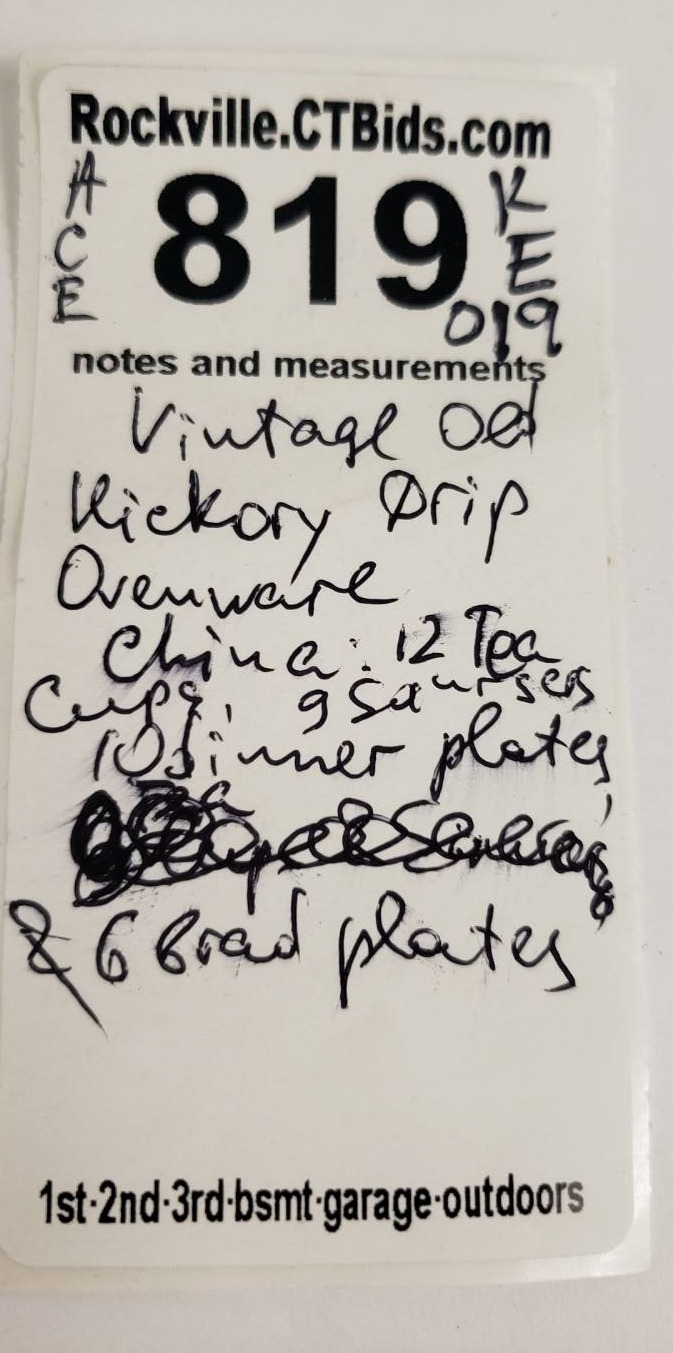 Rockville.CTBids.com
ACE 819 KE
019
notes and measurements
Vintage Old
Hickory Drip
Ovenware
China: 12 Tea
Cups, 9 Saursers
10 dinner plates,
& 6 Bread plates
1st·2nd·3rd·bsmt·garage·outdoors